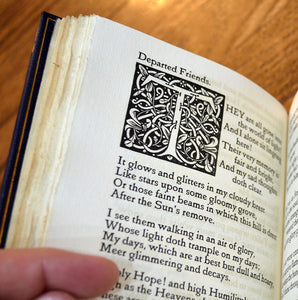 Departed Friends.
THEY are all gone
the world of light
And I alone sit lingering
here!
Their very memory
fair and bright,
And my sad
doth clear.
It glows and glitters in my cloudy breast
Like stars upon some gloomy grove,
Or those faint beams in which this hill is
After the Sun's remove.
I see them walking in an air of glory,
Whose light doth trample on my days;
My days, which are at best but dull and
Meer glimmering and decays.
oly Hope! and high Humility
as the Heavens
are